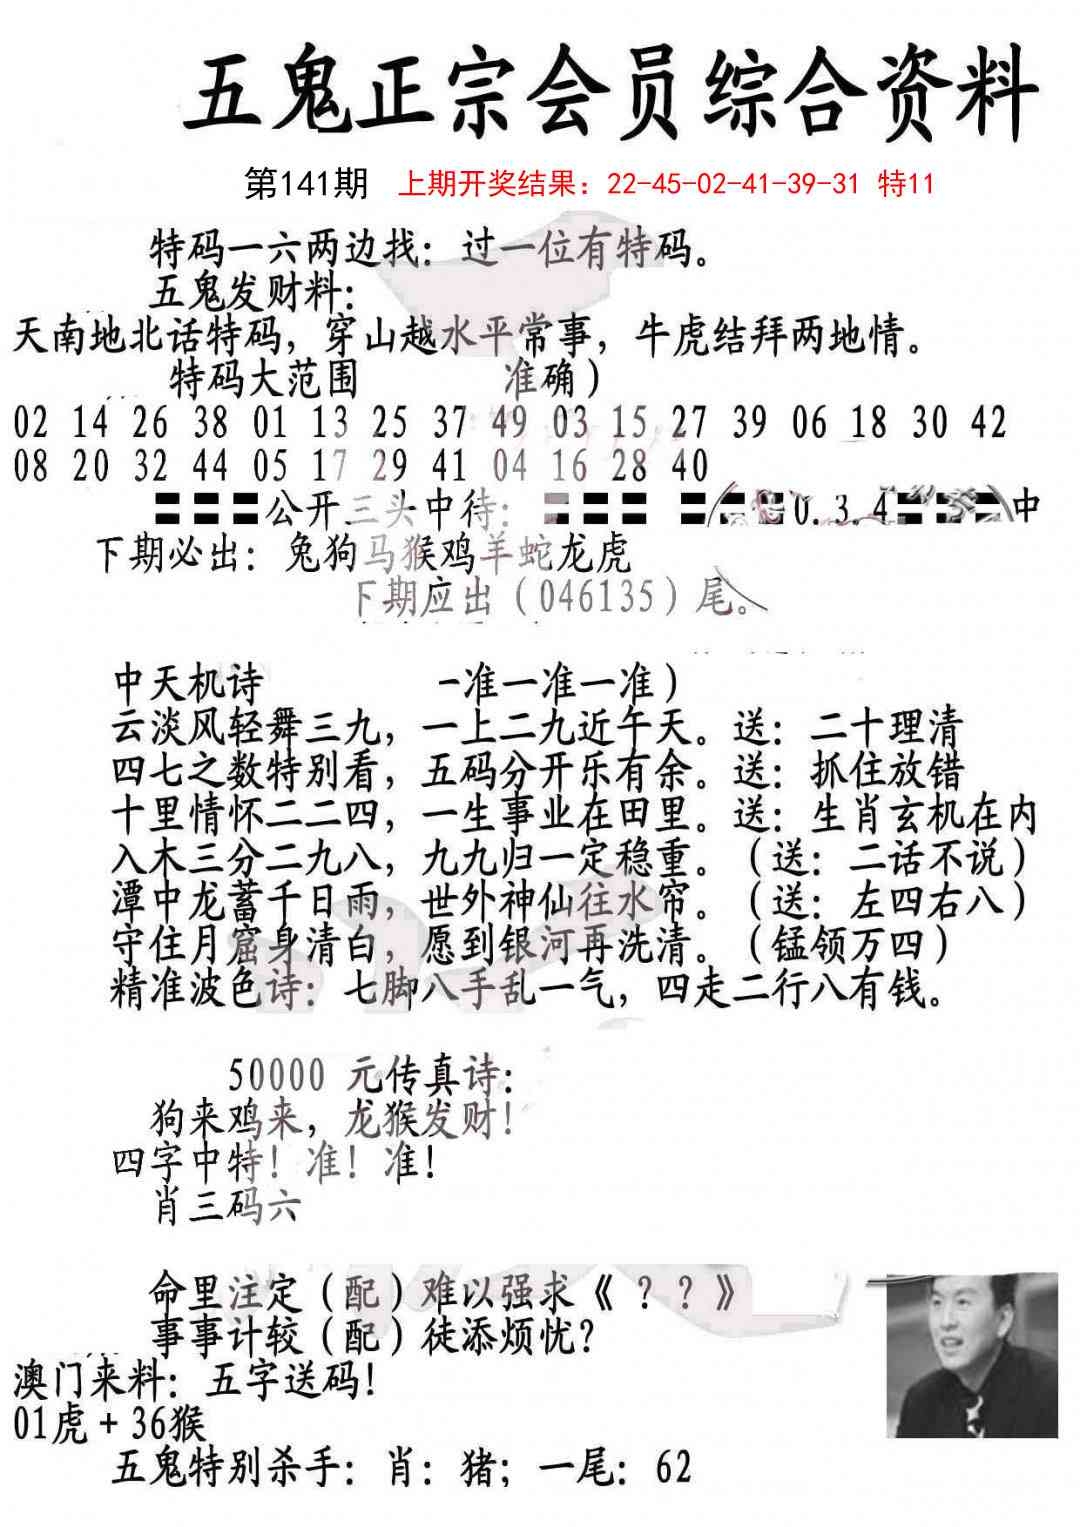 五鬼正宗会员综合资料
第141期 上期开奖结果：22-45-02-41-39-31 特11
特码一六两边找：过一位有特码。
五鬼发财料：
天南地北话特码，穿山越水平常事，牛虎结拜两地情。
特码大范围 准确）
02 14 26 38 01 13 25 37 49 03 15 27 39 06 18 30 42
08 20 32 44 05 17 29 41 04 16 28 40
☷公开三头中待：☷ ☷0.3.4☷中
下期必出：兔狗马猴鸡羊蛇龙虎
下期应出（046135）尾。
中天机诗 一准一准一准）
云淡风轻舞三九，一上二九近午天。送：二十理清
四七之数特别看，五码分开乐有余。送：抓住放错
十里情怀二二四，一生事业在田里。送：生肖玄机在内
入木三分二九八，九九归一定稳重。（送：二话不说）
潭中龙蓄千日雨，世外神仙往水帘。（送：左四右八）
守住月窟身清白，愿到银河再洗清。（锰领万四）
精准波色诗：七脚八手乱一气，四走二行八有钱。
50000 元传真诗：
狗来鸡来，龙猴发财！
四字中特！准！准！
肖三码六
命里注定（配）难以强求《？？》
事事计较（配）徒添烦忧？
澳门来料：五字送码！
01虎＋36猴
五鬼特别杀手：肖：猪；一尾：62